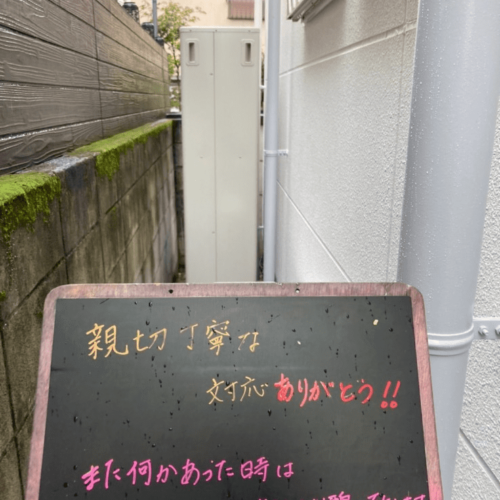 親切丁寧な
対応ありがとう!!
また何かあった時は